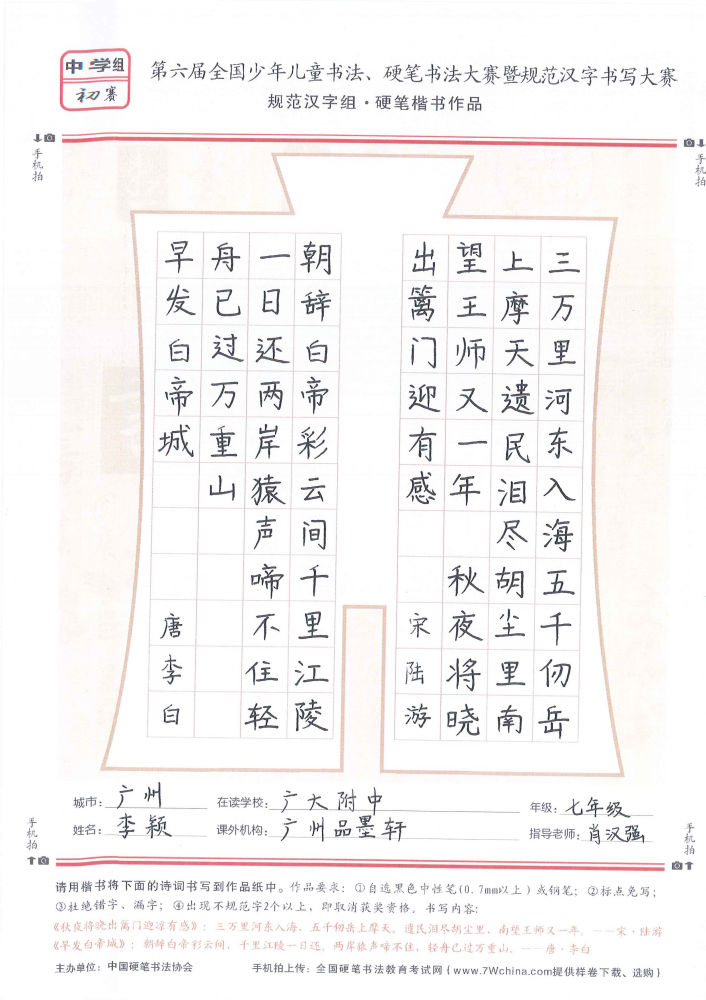 中学组
初赛
第六届全国少年儿童书法、硬笔书法大赛暨规范汉字书写大赛
规范汉字组·硬笔楷书作品
手机拍
手机拍
三万里河东入海五千仞岳
上摩天遗民泪尽胡尘里南
望王师又一年 秋夜将晓
出篱门迎有感 宋陆游
朝辞白帝彩云间千里江陵
一日还两岸猿声啼不住轻
舟已过万重山
早发白帝城 唐李白
城市：广州 在读学校：广大附中 年级：七年级
姓名：李颖 课外机构：广州品墨轩 指导老师：肖汉强
手机拍
手机拍
请用楷书将下面的诗词书写到作品纸中。作品要求：①自选黑色中性笔(0.7mm以上)或钢笔；②标点免写；
③杜绝错字、漏字；④出现不规范字2个以上，即取消获奖资格。书写内容：
《秋夜将晓出篱门迎凉有感》：三万里河东入海，五千仞岳上摩天。遗民泪尽胡尘里，南望王师又一年。——宋·陆游
《早发白帝城》：朝辞白帝彩云间，千里江陵一日还。两岸猿声啼不住，轻舟已过万重山。——唐·李白
主办单位：中国硬笔书法协会 手机拍上传：全国硬笔书法教育考试网(www.7Wchina.com提供样卷下载、选购)